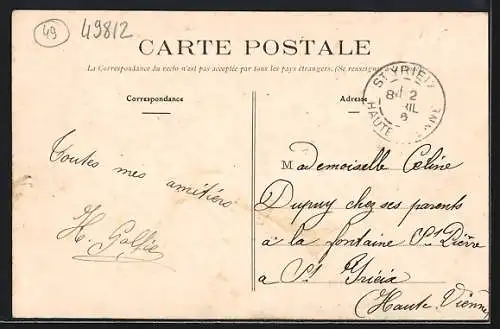 49
49812
CARTE POSTALE
La Correspondance du recto n'est pas acceptée par tous les pays étrangers. (Se renseigner à la
Correspondance
Adresse
ST YRIEIX
8 2
IL
6
HAUTE VIENNE
Toutes mes amitiés
H.
Mademoiselle Céline
Dupuy chez ses parents
à la fontaine St
a St Yrieix
(Haute Vienne